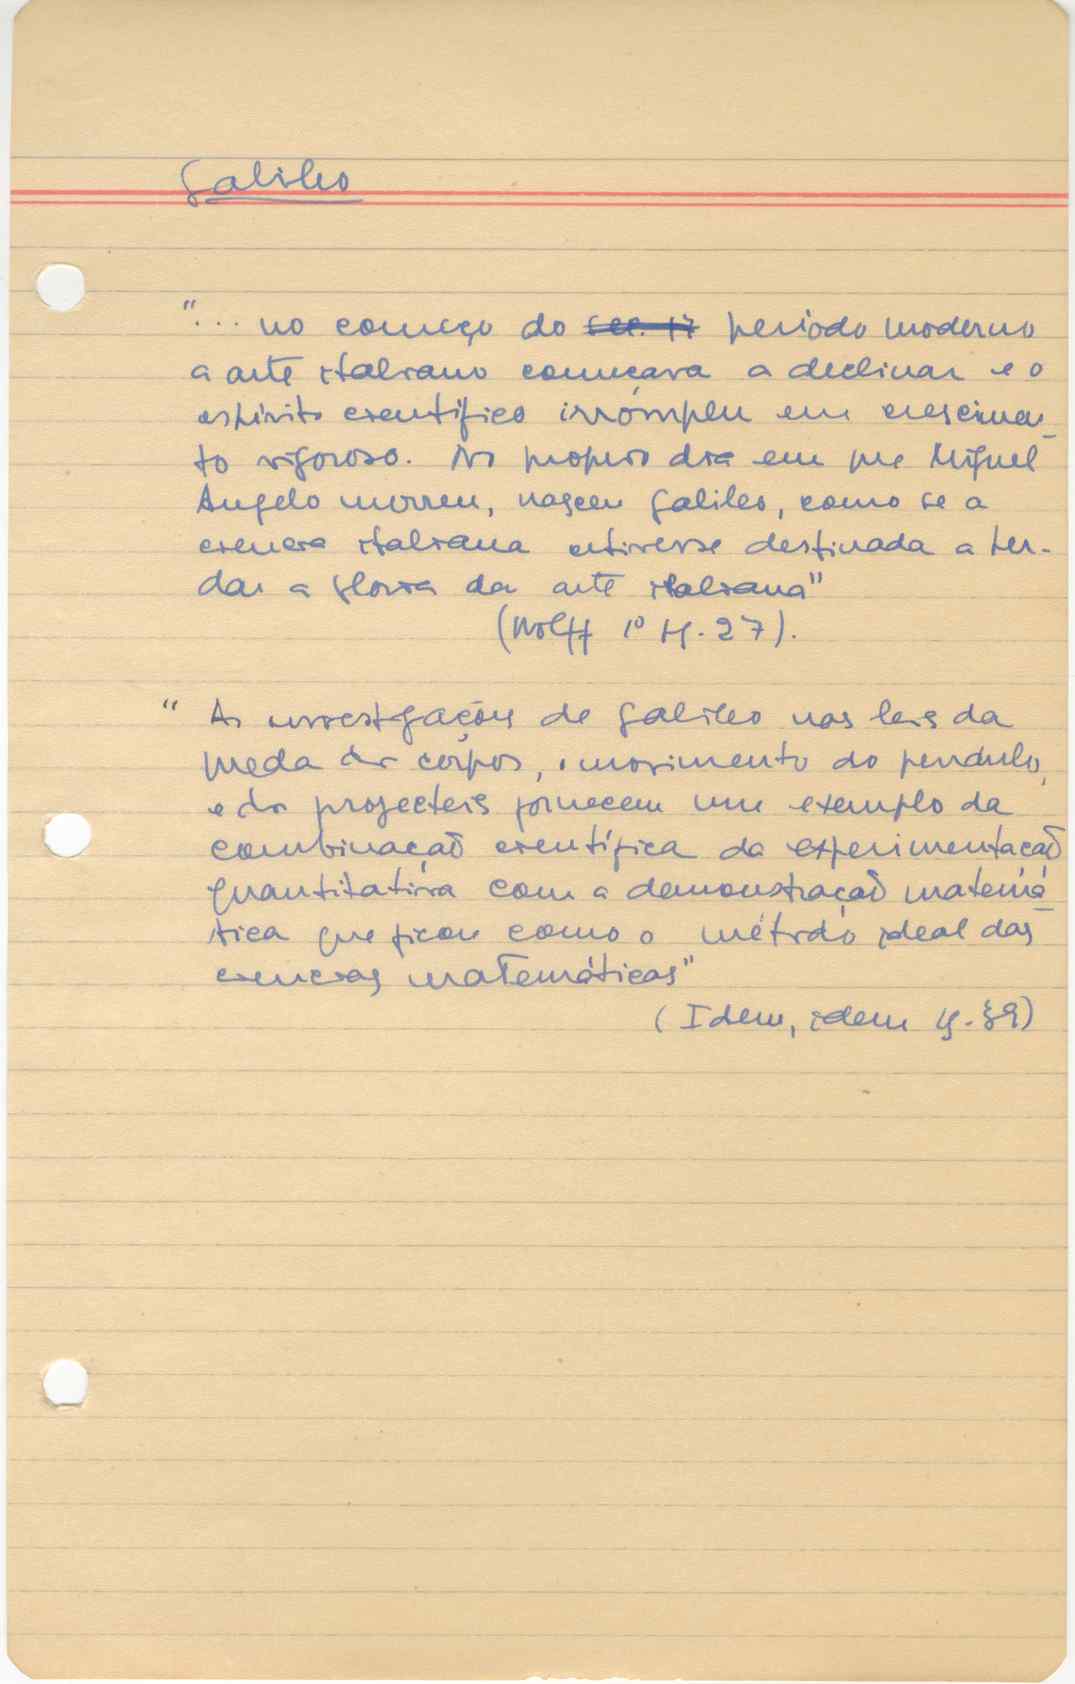 Galileo
"... no começo do sec. 17 período moderno
a arte italiana começava a declinar e o
espírito científico irrompeu em crescimen-
to vigoroso. No proprio dia em que Miguel
Angelo morreu, nasceu Galileo, como se a
ciencia italiana estivesse destinada a her-
dar a gloria da arte italiana"
(Wolff 1º pg. 27).
" As investigações de Galileo nas leis da
queda dos corpos, o movimento do pendulo,
e dos projecteis fornecem um exemplo da
combinação científica da experimentação
quantitativa com a demonstração matemá-
tica que ficou como o método ideal das
ciencias matemáticas"
(Idem, idem pg. 29)